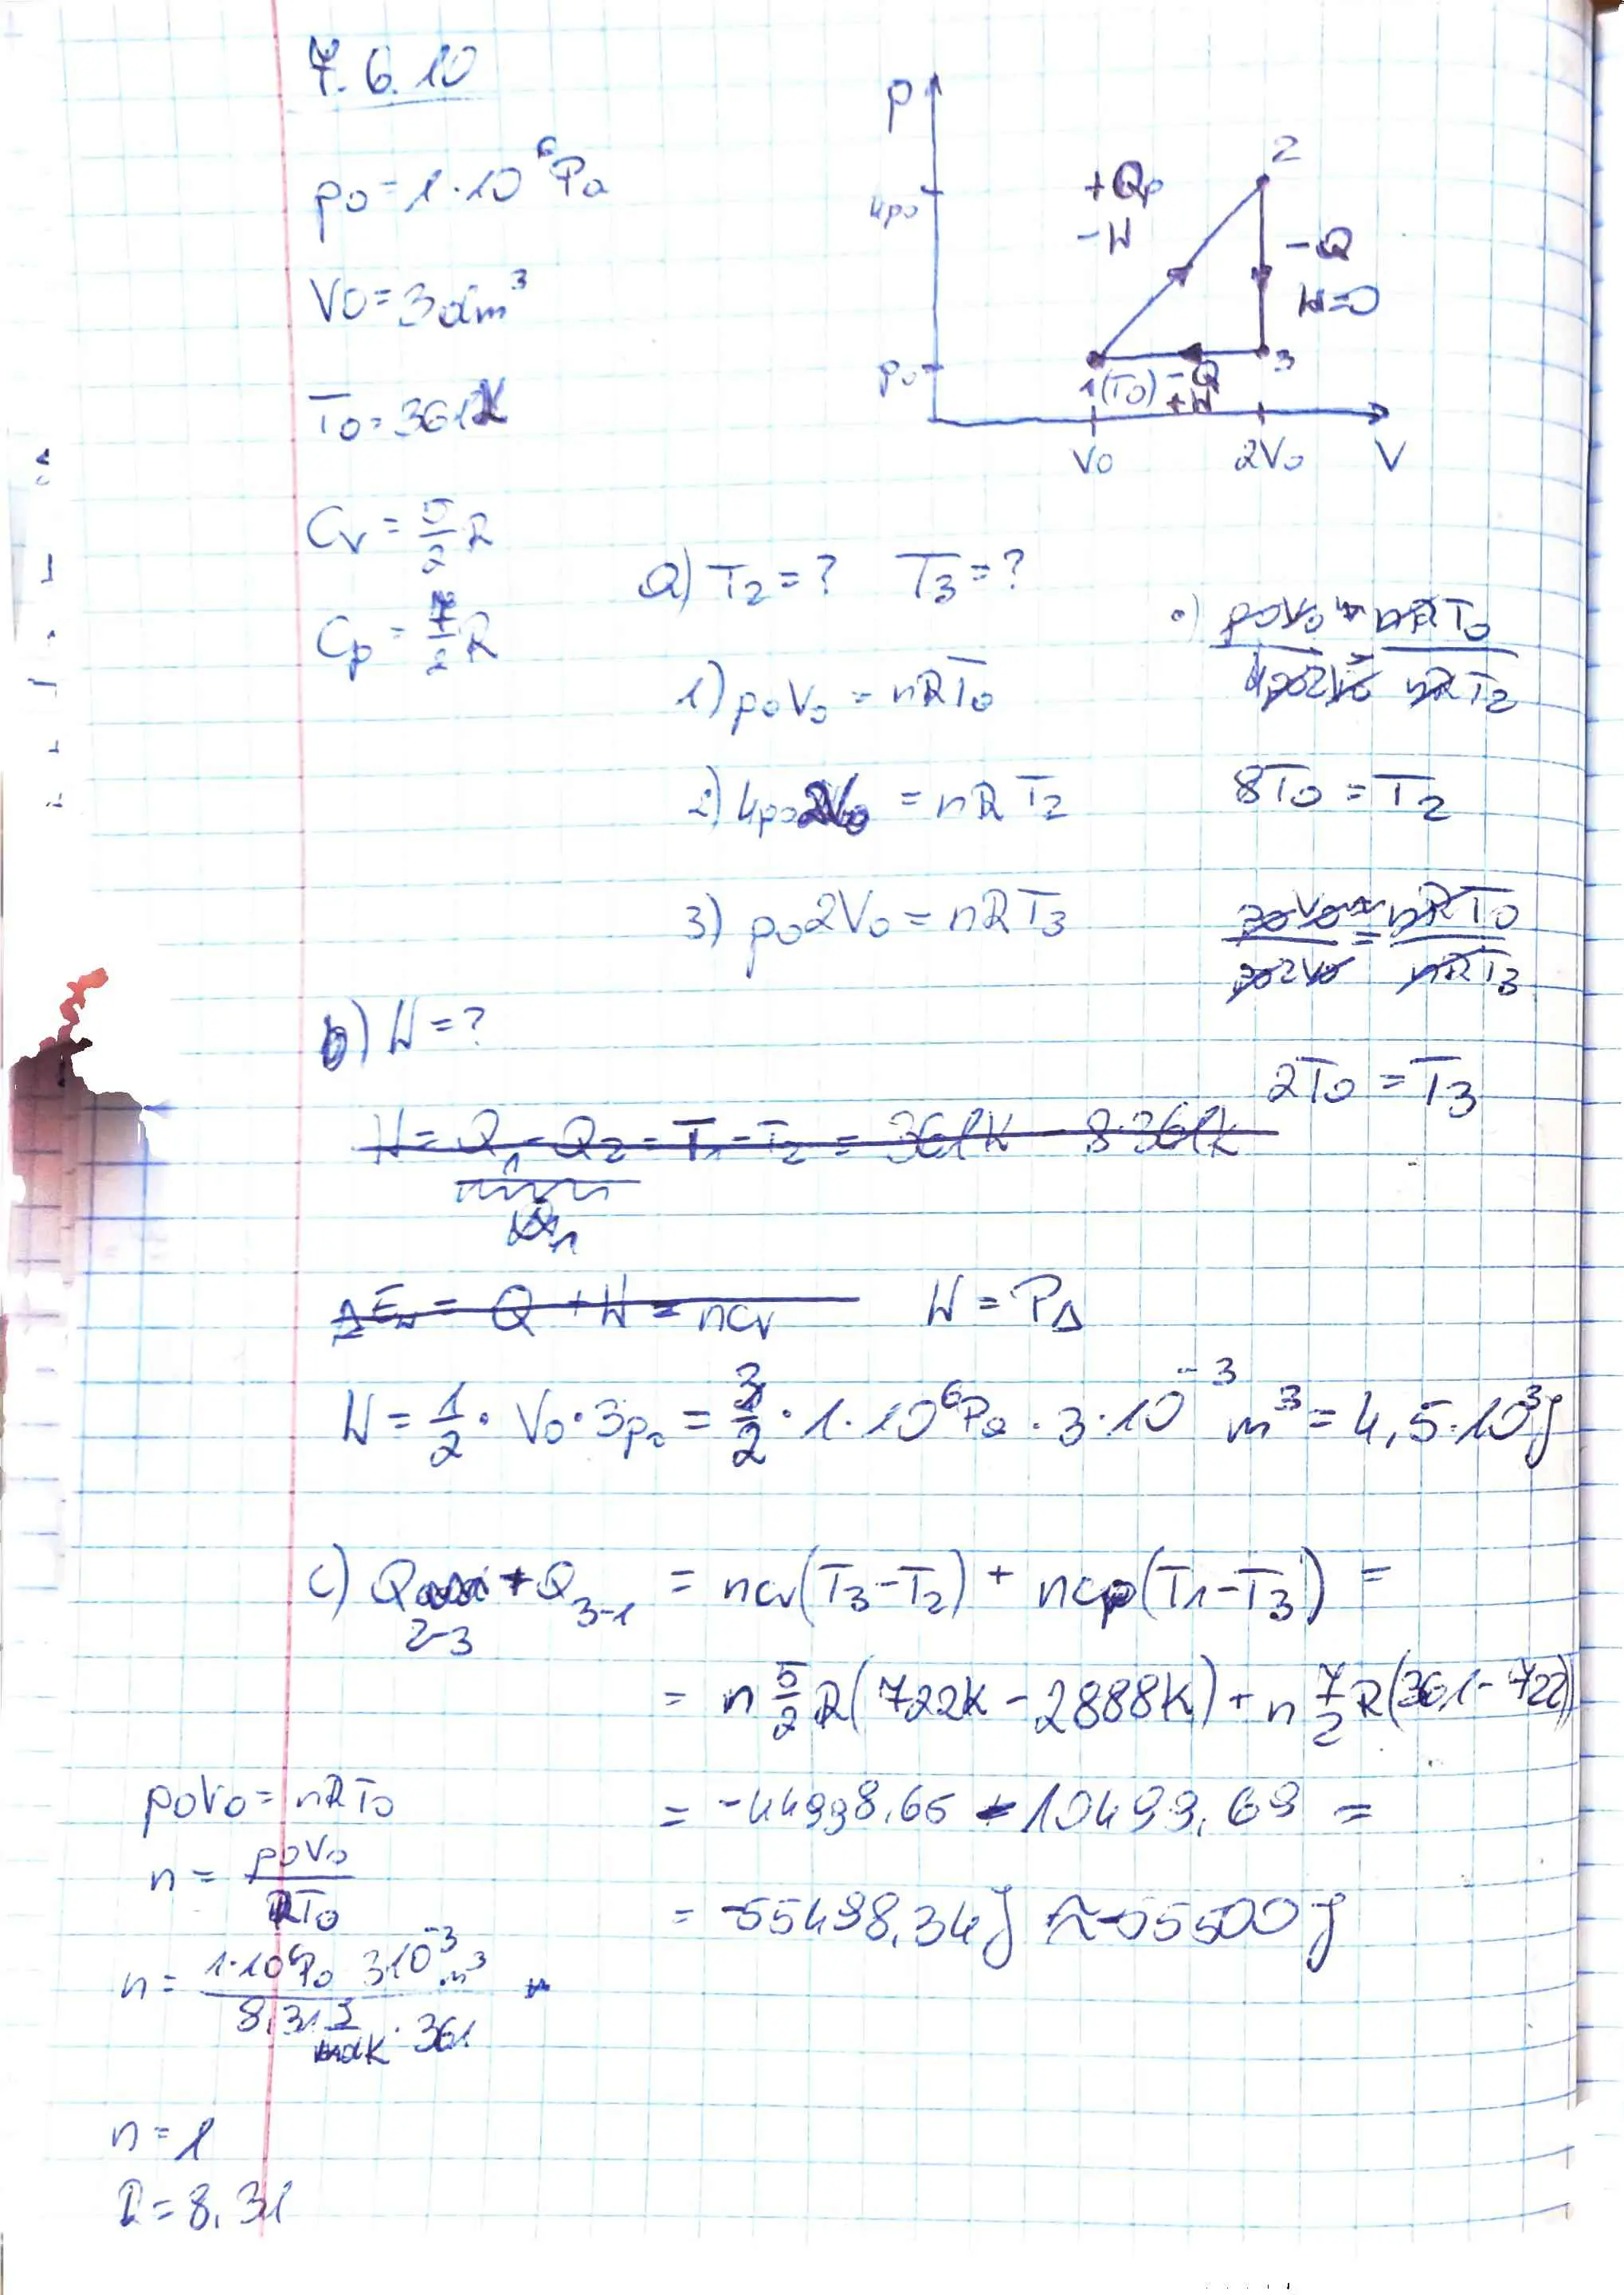 7.6.10
p0 = 1·10⁶Pa
V0 = 3dm³
T0 = 361K
Cv = 5/2 R
Cp = 7/2 R
p
2
+Qp
4p0
-W
-Q
W=0
3
p0
1(T0) -Q
+W
V0 2V0 V
a) T2 = ? T3 = ?
1) p0V0 = nRT0
p0V0 = nRT0
4p02V0 = nRT2
2) 4p02V0 = nRT2
8T0 = T2
3) p02V0 = nRT3
p0V0 / p02V0 = nRT0 / nRT3
2T0 = T3
b) W = ?
W = Q1 - Q2 = T1 - T2 = 361K - 8·361K
ΔEw = Q + W = ncv
W = PΔ
W = 1/2 · V0 · 3p0 = 3/2 · 1·10⁶Pa · 3·10⁻³ m³ = 4,5·10³J
c) Q2-3 + Q3-1 = ncv(T3-T2) + ncp(T1-T3) =
= n 5/2 R(722K - 2888K) + n 7/2 R(361-722)
= -44998,65 - 10499,69 =
= -55498,34J ≈ -55500J
p0V0 = nRT0
n = p0V0 / RT0
n = 1·10⁶Pa 3·10⁻³ m³ / 8,31 J/molK · 361
n = 1
R = 8,31